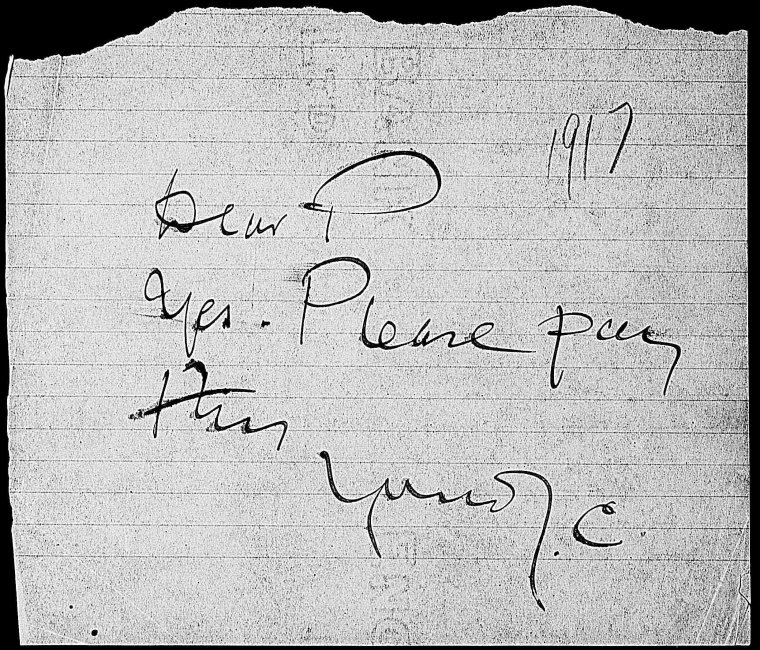 1917
Dear P
Yes. Please pay
this
Yours
J.C.